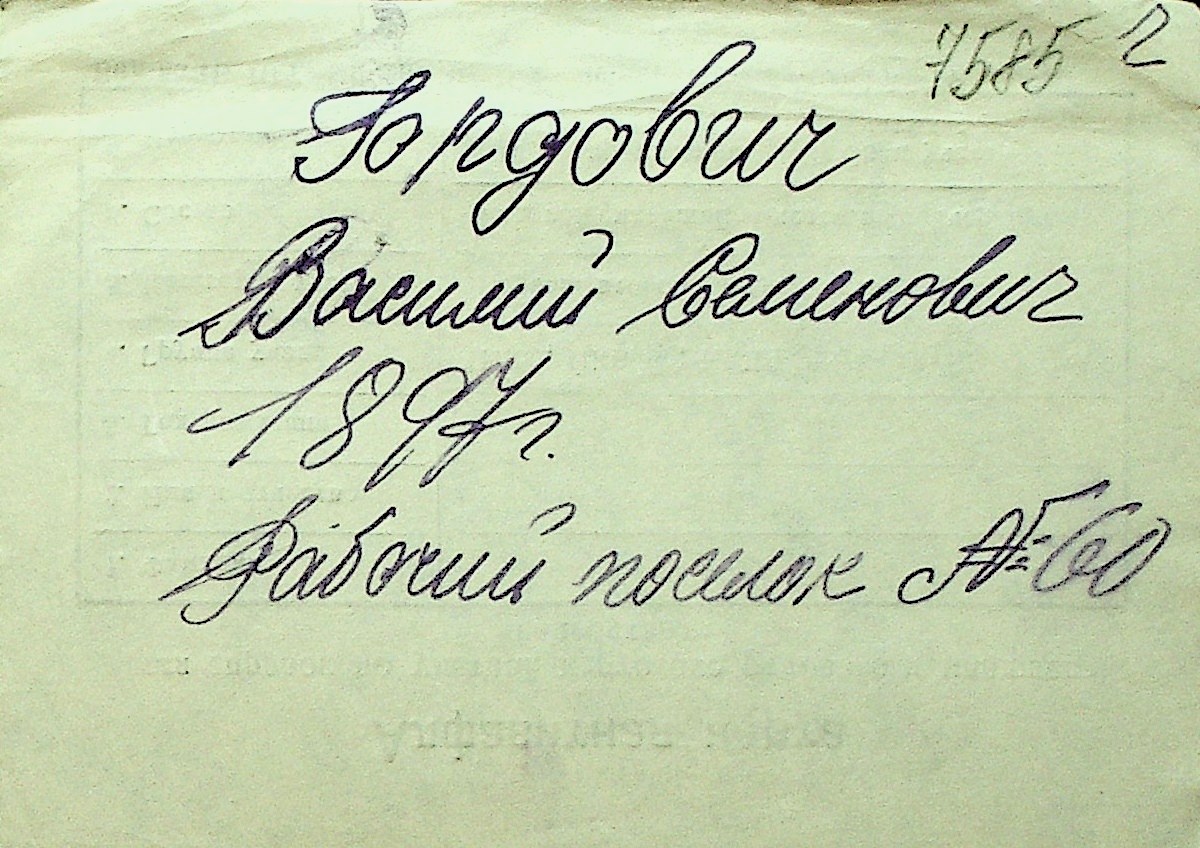 7585 г
Гордович
Василий Семенович
1897 г.
Рабочий поселок № 60